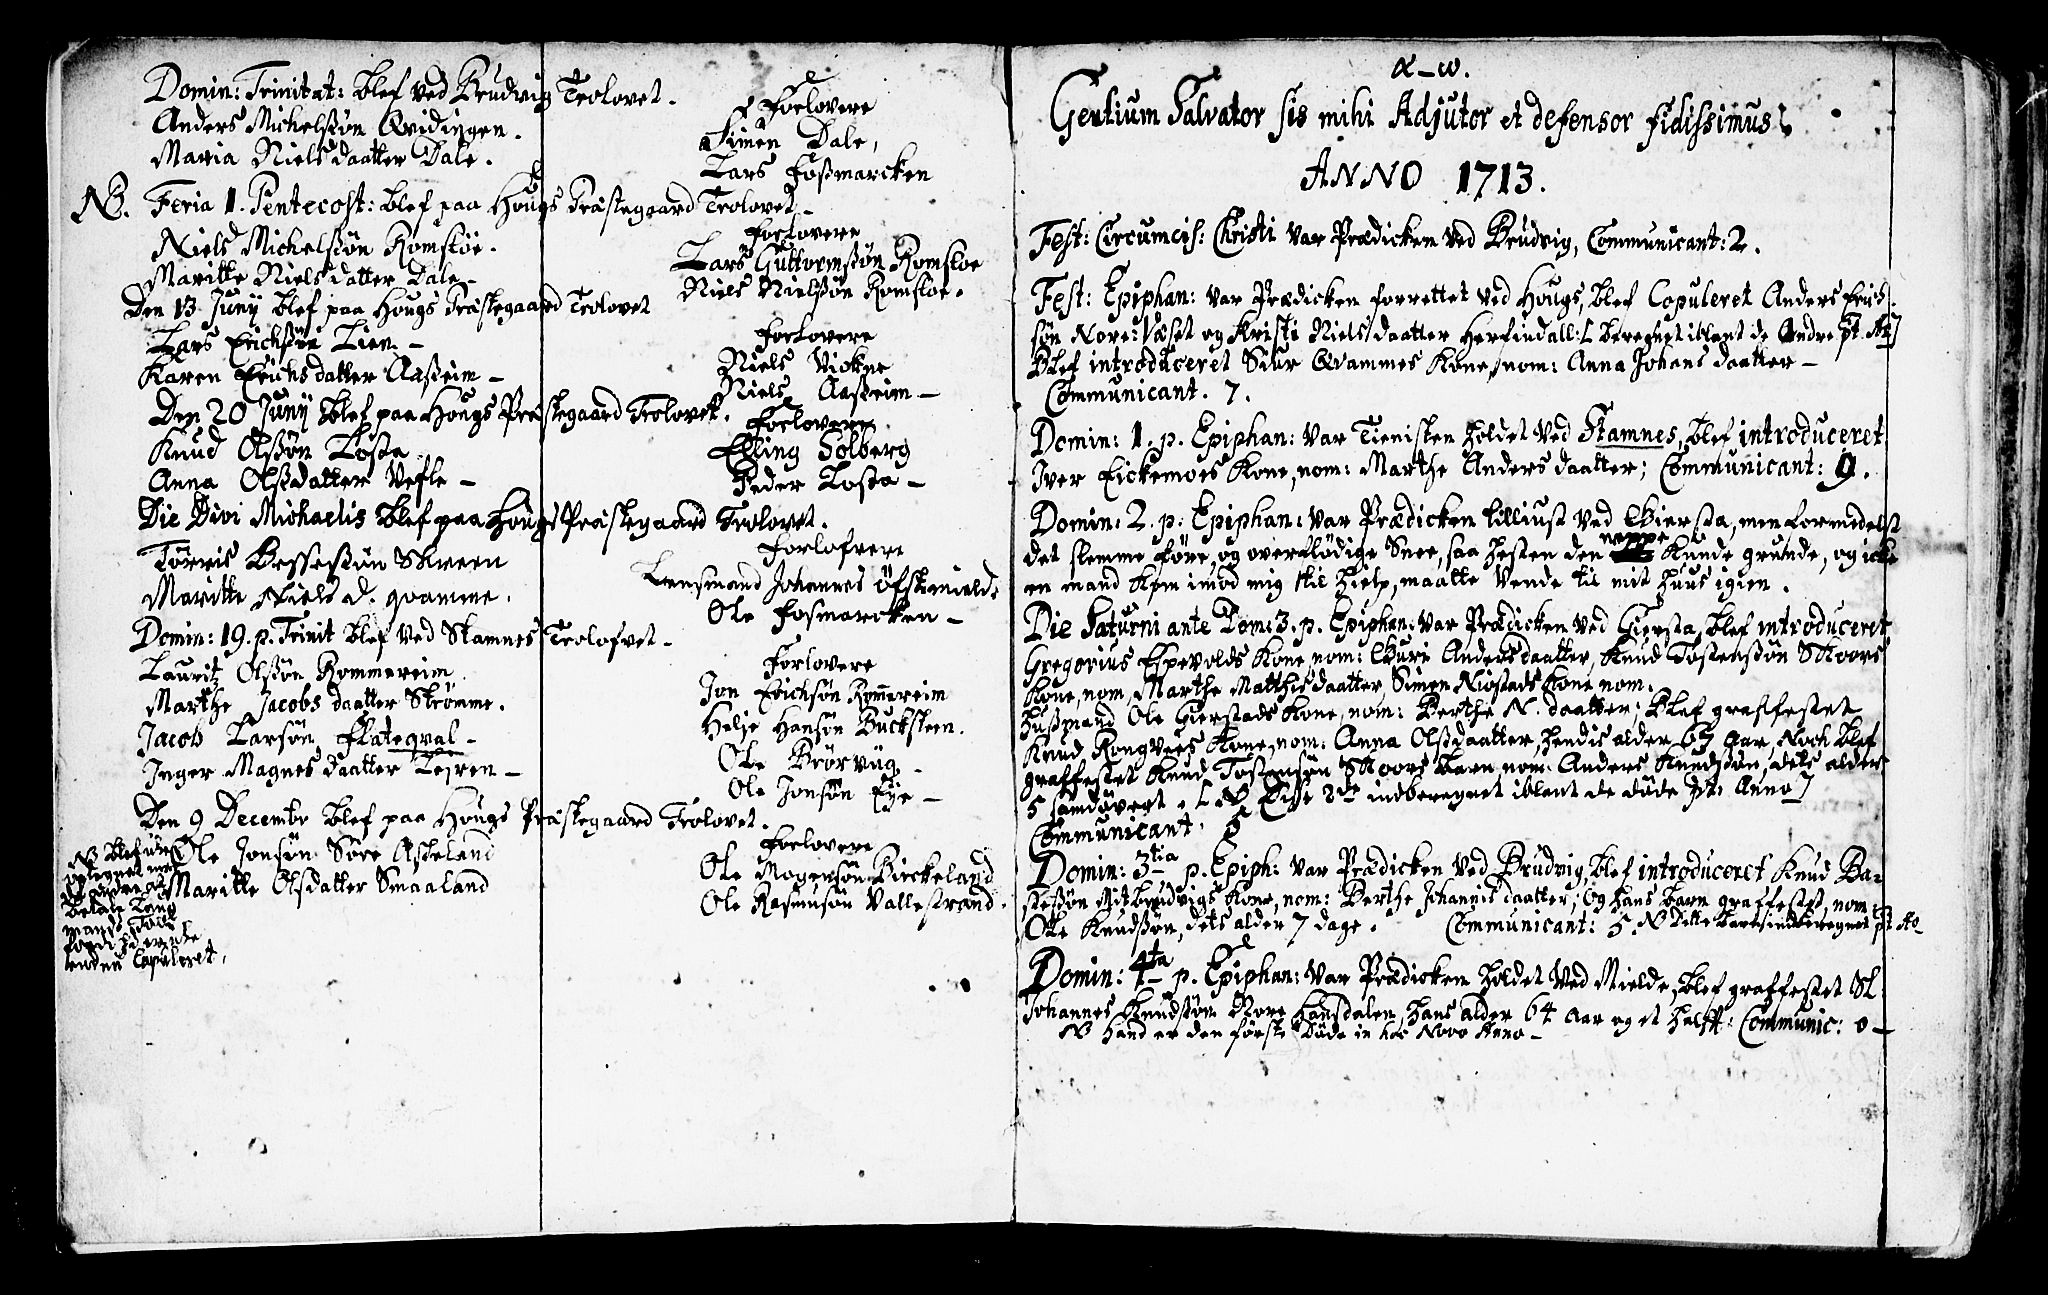 Domin: Trinitat: blef ved Brudvig Trolovet.
Anders Michelssøn Qvidingen.
Maria Nielsdaatter Dale.
Forlovere
Simen Dale,
Lars Fossmarcken
NB. Feria 1. Pentecost: blef paa Hougs Præstegaard Trolovet.
Niels Michelssøn Romsløe.
Maritte Nielsdatter Dale
Forlovere
Lars Guttormssøn Romsloe
Niels Nielssøn Romsloe.
Den 13 Juny blef paa Hougs Præstegaard Trolovet
Lars Erichssøn Lien
Karen Erichsdatter Aasseim
Forlovere
Niels Vickne
Niels Aasseim
Den 20 Juny blef paa Hougs Præstegaard Trolovet.
Knud Olssøn Tossa
Anna Olssdatter Vefle
Forlovere
Elling Solberg
Peder Tossa
Die Divi Michaelis blef paa Hougs Præstegaard Trolovet.
Tørris Bessessøn Skreen
Maritte Niels d. qvamme.
Forlofvere
Lensmand Johannes
Ole Fosmarcken
Domin: 19. p. Trinit blef ved Stamnes Trolofvet
Lauritz Olssøn Rommereim
Marthe Jacobs daatter Strømme.
Jacob Larsøn Flateqval
Inger Magnes daatter
Forlovere
Jon Erichsøn Rommereim
Helje Hansøn Bucksteen.
Ole Brørvüg
Ole Jonsøn Eye
Den 9 Decembr blef paa Hougs Præstegaard Trolovet.
Ole Jonsøn Søre Askeland
Maritte Olsdatter Smaaland
Forlovere
Ole Mogensøn Birckeland
Ole Rasmusøn Vallestrand.
NB blef icke
Copuleret.
α–ω.
Gentium Salvator sis mihi Adjutor et defensor fidissimus
ANNO 1713.
Fest: Circumcis: Christi var Prædicken ved Brudvig, Communicant: 2.
Fest: Epiphan: var Prædicken forrettet ved Hougs, blef Copuleret Anders Erich-
søn Nore: Vaset og Kristi Niels daatter Herfindall: [beregnet iblant de Andre pt. Ao]
Blef introduceret Siur Qvammes Kone, nom: Anna Johans daatter
Communicant. 7.
Domin: 1. p. Epiphan: var Tienisten holdet ved Stamnes, blef introduceret
Iver Eickemoes Kone, nom: Marthe Anders daatter; Communicant: 9.
Domin: 2. p. Epiphan: var Prædicken tilliust ved Giersta, men formedelst
det slemme føre, og overflødige Snee, saa hesten den neppe kunde grunde, og icke
en mand kom imod mig til hielp, maatte vende til mit huus igien.
Die Saturni ante Dom: 3. p. Epiphan: var Prædicken ved Giersta, blef introduceret
Gregorius Espevolds Kone, nom: Guri Andersdaatter, Knud Tostenssøn Skoors
Kone, nom, Marthe Matthisdaatter, Simen Niostads Kone nom.
Hussmand Ole Gierstads Kone, nom: Berthe N. daatter; Blef graffestet
Knud Rongvees Kone, nom: Anna Olssdaatter, hendis alder 67 Aar, Noch blef
graffestet Knud Tostensøn Skoors barn, nom: Anders Knudssøn, dets alder
5 samdøvegt. [NB Disse 2de indberegnet iblant de døde pt: Anno]
Communicant. 5
Domin: 3tia p. Epiph: var Prædicken ved Brudvig, blef introduceret Knud Ba-
stessøn Mitbrudvigs Kone, nom: Berthe Johannis daatter; Og hans barn graffestet, nom:
Ole Knudssøn, dets alder 7 dage. Communicant: 5. NB Dette barn indberegnet pt Ao
Domin: 4ta p. Epiphan: var Prædicken holdet ved Mielde, blef graffestet Sl.
Johannes Knudssøn Nore Hansdalen, hans alder 64 Aar og et halft: Communic: 0
NB Hand er den første Døde in hoc Novo Anno